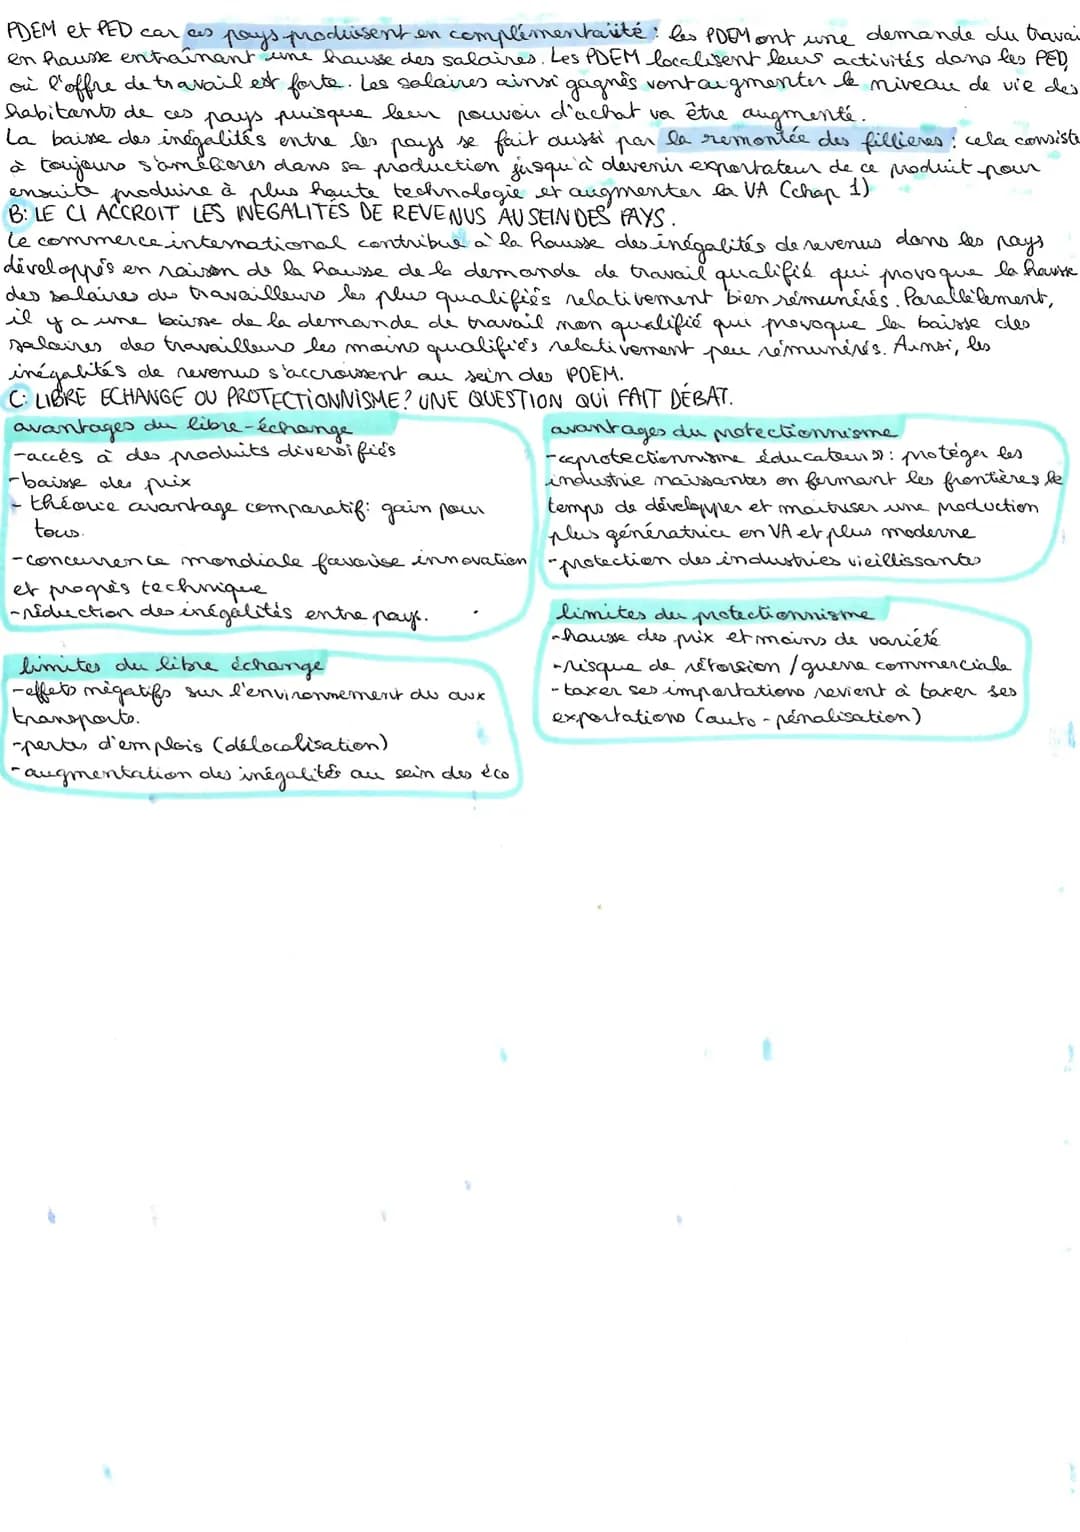 PDEM et PED car ces pays produisent en complémentarité : les PDEM ont une demande du travai
en hausse entraînant une hausse des salaires. Les PDEM localisent leurs activités dans les PED,
où l'offre de travail est forte. Les salaires ainsi gagnés vont augmenter le niveau de vie des
habitants de ces pays puisque leur pouvoir d'achat va être augmenté.
La baisse des inégalités entre les pays se fait aussi par la remontée des fillieres : cela consiste
à toujours s'améliorer dans sa production jusqu'à devenir exportateur de ce produit pour
ensuite produire à plus haute technologie et augmenter la VA (chap 1)
B: LE CI ACCROIT LES INÉGALITÉS DE REVENUS AU SEIN DES PAYS.
Le commerce international contribue à la hausse des inégalités de revenus dans les pays
développés en raison de la hausse de la demande de travail qualifié qui provoque la hausse
des salaires des travailleurs les plus qualifiés relativement bien rémunérés. Parallèlement,
il y a une baisse de la demande de travail non qualifié qui provoque la baisse des
salaires des travailleurs les moins qualifiés relativement peu rémunérés. Ainsi, les
inégalités de revenus s'accroissent au sein des PDEM.
C: LIBRE ECHANGE OU PROTECTIONNISME? UNE QUESTION QUI FAIT DÉBAT.
avantages du libre-échange
-accès à des produits diversifiés
-baisse des prix
-théorie avantage comparatif: gain pour
tous.
-concurrence mondiale favorise innovation
et progrès technique
-réduction des inégalités entre pays.
limites du libre échange
-effets négatifs sur l'environnement du aux
transports.
-pertes d'emplois (délocalisation)
-augmentation des inégalités au sein des éco
avantages du protectionnisme
-«protectionnisme éducateur»: protéger les
industrie naissantes en fermant les frontières le
temps de développer et maitriser une production
plus génératrice en VA et plus moderne
-protection des industries vieillissantes
limites du protectionnisme
-hausse des prix et moins de variété
-risque de rétorsion / guerre commerciale
-taxer ses importations revient à taxer ses
exportations (auto-pénalisation)